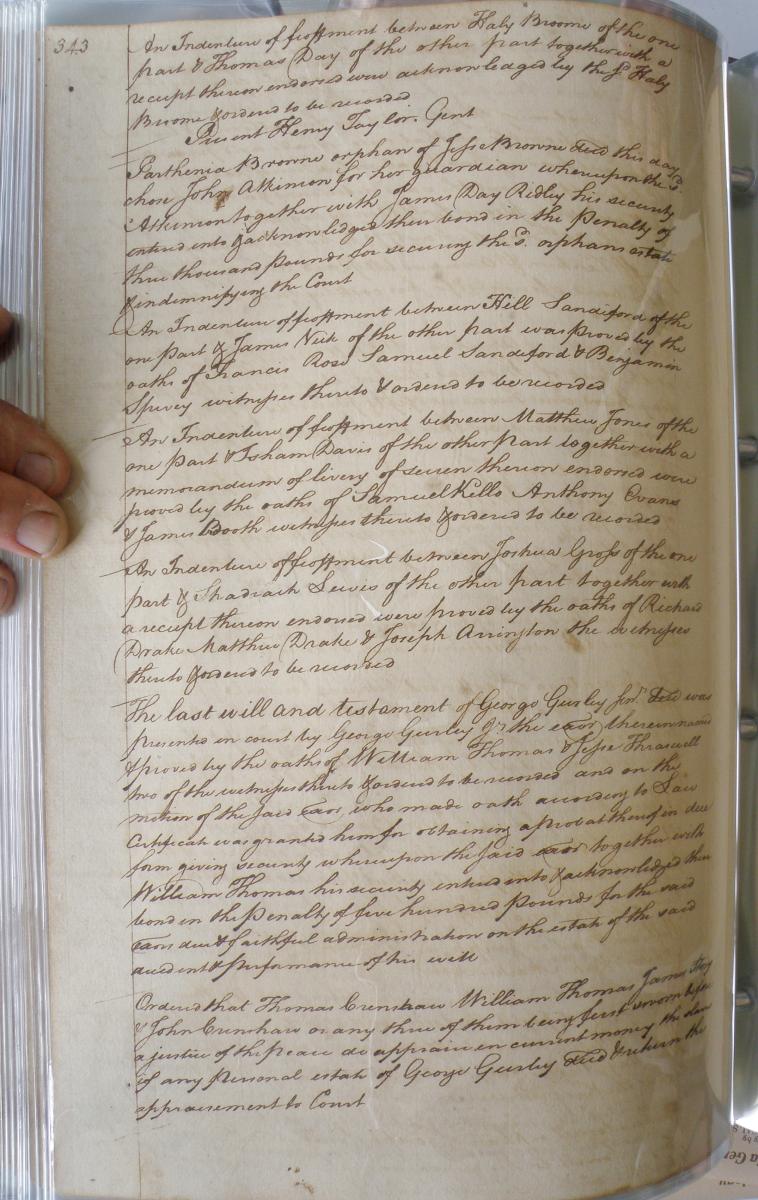 343
An Indenture of feoffment between Haly Broome of the one
part & Thomas Day of the other part together with a
receipt thereon endorsed were acknowledged by the sd Haly
Broome & ordered to be recorded
Present Henry Taylor Gent
Parthenia Browne orphan of Jesse Browne decd this day
chose John Atkinson for her guardian whereupon the sd
Atkinson together with James Day Ridley his security
entered into & acknowledged their bond in the Penalty of
three thousand pounds for securing the sd. orphans estate
& indemnifying the Court
An Indenture of feoffment between Hill Sandiford of the
one part & James of the other part was proved by the
oaths of Francis Rose Samuel Sandeford & Benjamin
Spivey witnesses thereto & ordered to be recorded
An Indenture of feoffment between Matthew Jones of the
one part & Isham Davis of the other part together with a
memorandum of livery of seizen thereon endorsed were
proved by the oaths of Samuel Kello Anthony Evans
& James Booth witnesses thereto & ordered to be recorded
An Indenture of feoffment between Joshua Gross of the one
part & Shadrach Lewis of the other part together with
a receipt thereon endorsed were proved by the oaths of Richard
Drake Matthew Drake & Joseph Arrington the witnesses
thereto & ordered to be recorded
The last will and testament of George Gurley senr. decd was
presented in court by George Gurley jr the exor therein named
& proved by the oaths of William Thomas & Jesse Thraswell
two of the witnesses thereto & ordered to be recorded and on the
motion of the said exor, who made oath according to Law
Certificate was granted him for obtaining a probat thereof in due
form giving security whereupon the said exor together with
William Thomas his security entered into & acknowledged their
bond in the Penalty of five hundred Pounds for the said
exors due & faithful administration on the estate of the said
decedent & performance of his will
Ordered that Thomas Crenshaw William Thomas James
& John Crenshaw or any three of them being first sworn before
a justice of the peace do appraise in current money the slaves
if any & Personal estate of George Gurley decd & return the
appraisement to Court